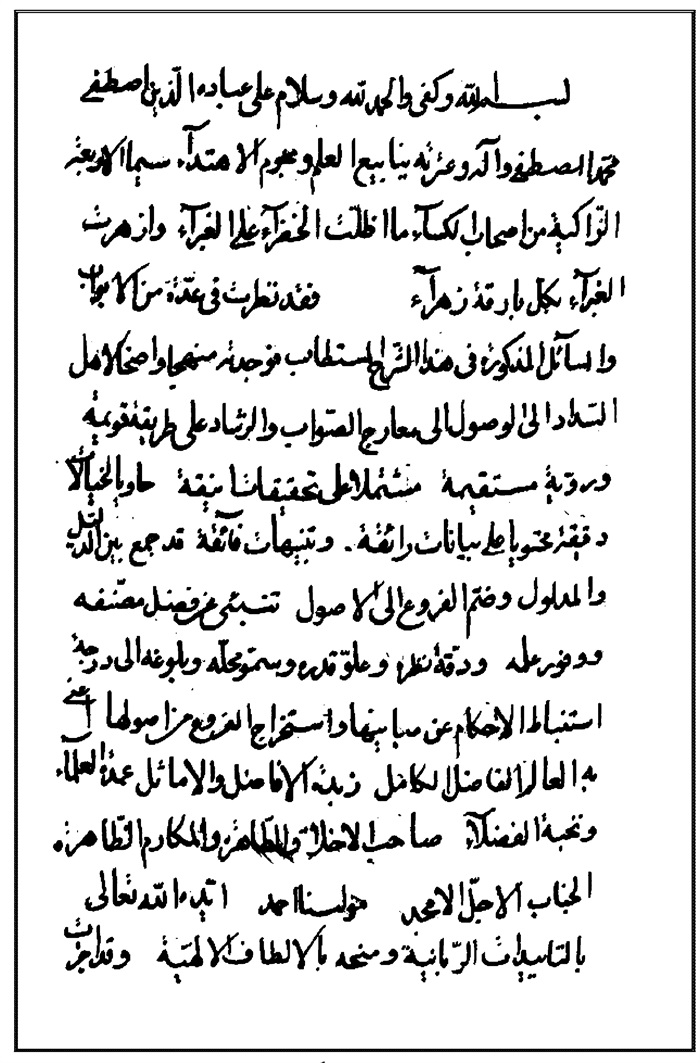 بسم الله وكفى والحمد لله وسلام على عباده الذين اصطفى
محمد المصطفى وآله وعترته ينابيع العلم ونجوم الاهتدآء سيما الاربعة
الزاكية من اصحاب الكسآء ما اظلت الخضرآء على الغبرآء وازهرت
الغبرآء بكل بارقة زهرآء فقد نظرت فى عدة من الابواب
والمسآئل المذكورة فى هذا الشرح المستطاب فوجدته منهجا واضحا لاهل
السداد الى الوصول الى معارج الصواب والرشاد على طريقة قويمة
وروية مستقيمة مشتملا على تحقيقات انيقة حاويا لخيالات
دقيقة محتويا على بيانات رائقة. وتنبيهات فآئقة قد جمع بين الدليل
والمدلول وضم الفروع الى الاصول تنبئ عن فضل مصنفه
ووفور علمه ودقة نظره وعلو قدره وسمو محله وبلوغه الى درجة
استنباط الاحكام عن مبانيها واستخراج الفروع من اصولها اعنى
به العالم الفاضل الكامل زبدة الافاضل والاماثل عمدة العلمآء
ونخبة الفضلآء صاحب الاخلاق الطاهرة والمكارم الظاهرة
الجناب الاجل الامجد مولينا احمد ايده الله تعالى
بالتاييدات الربانية ومنحه بالالطاف الالهية وقد اجزت